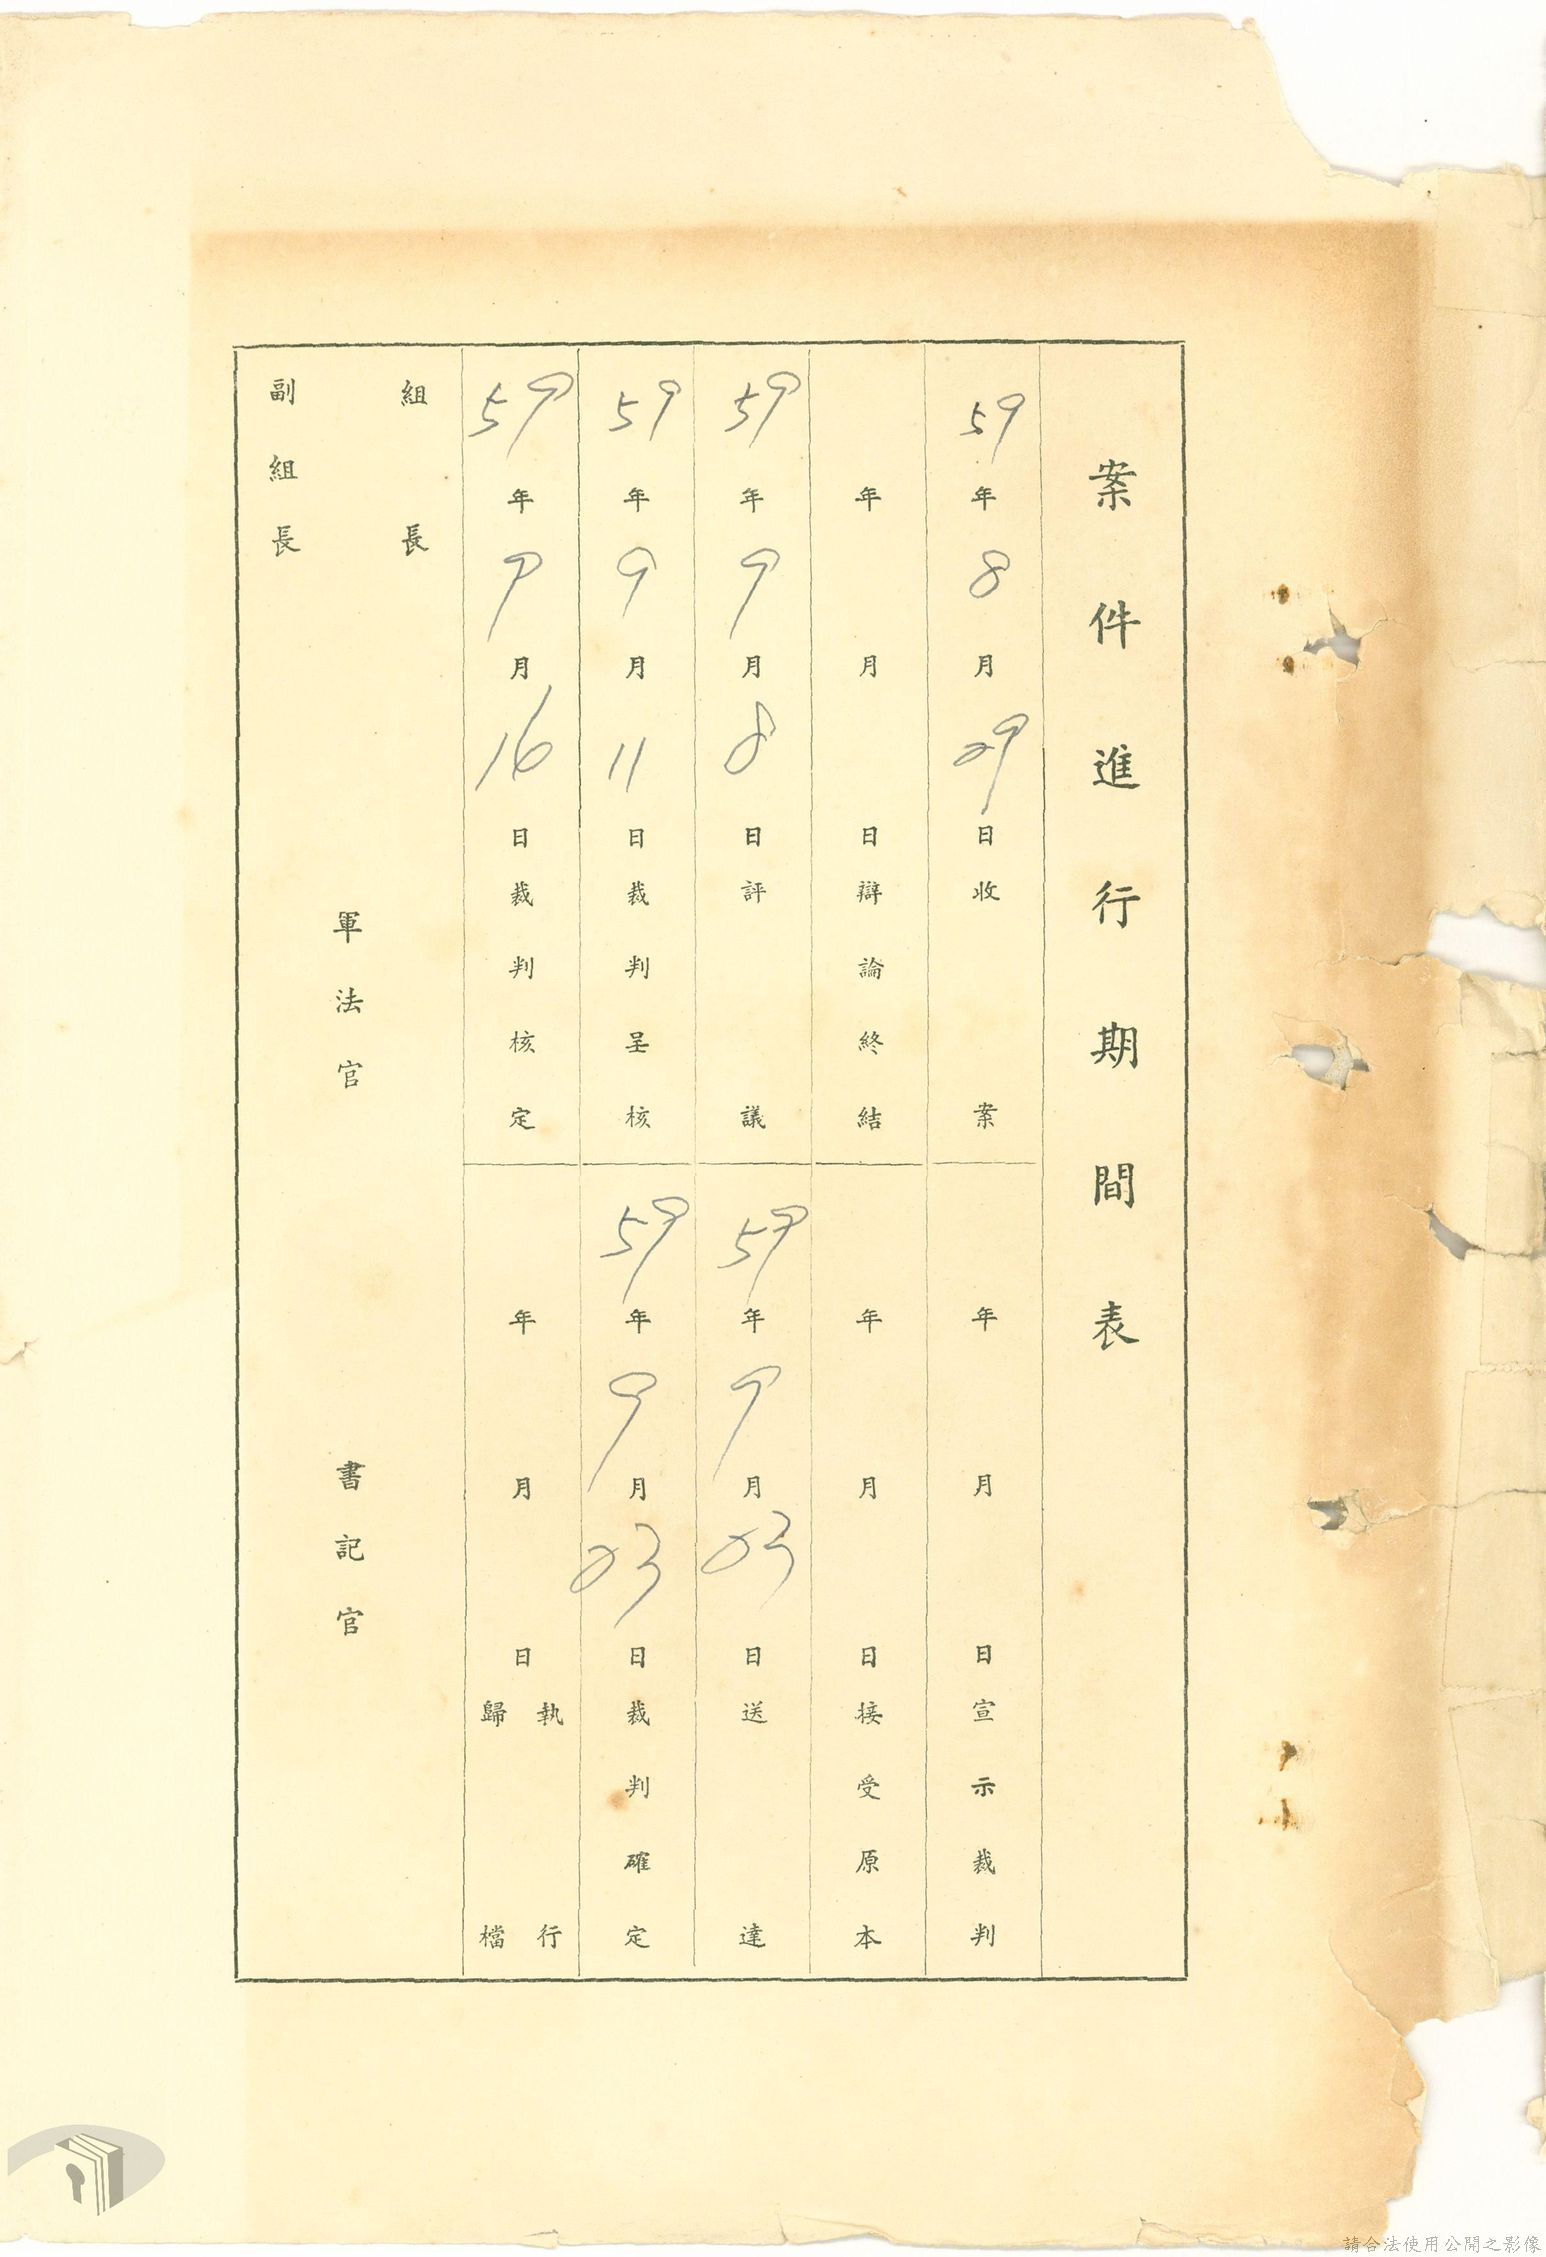 案件進行期間表
59年8月29日收案
年月日宣示裁判
年月日辯論終結
年月日接受原本
59年9月8日評議
59年9月23日送達
59年9月11日裁判呈核
59年9月23日裁判確定
59年9月16日裁判核定
年月日執行歸檔
組長
副組長
軍法官
書記官
請合法使用公開之影像